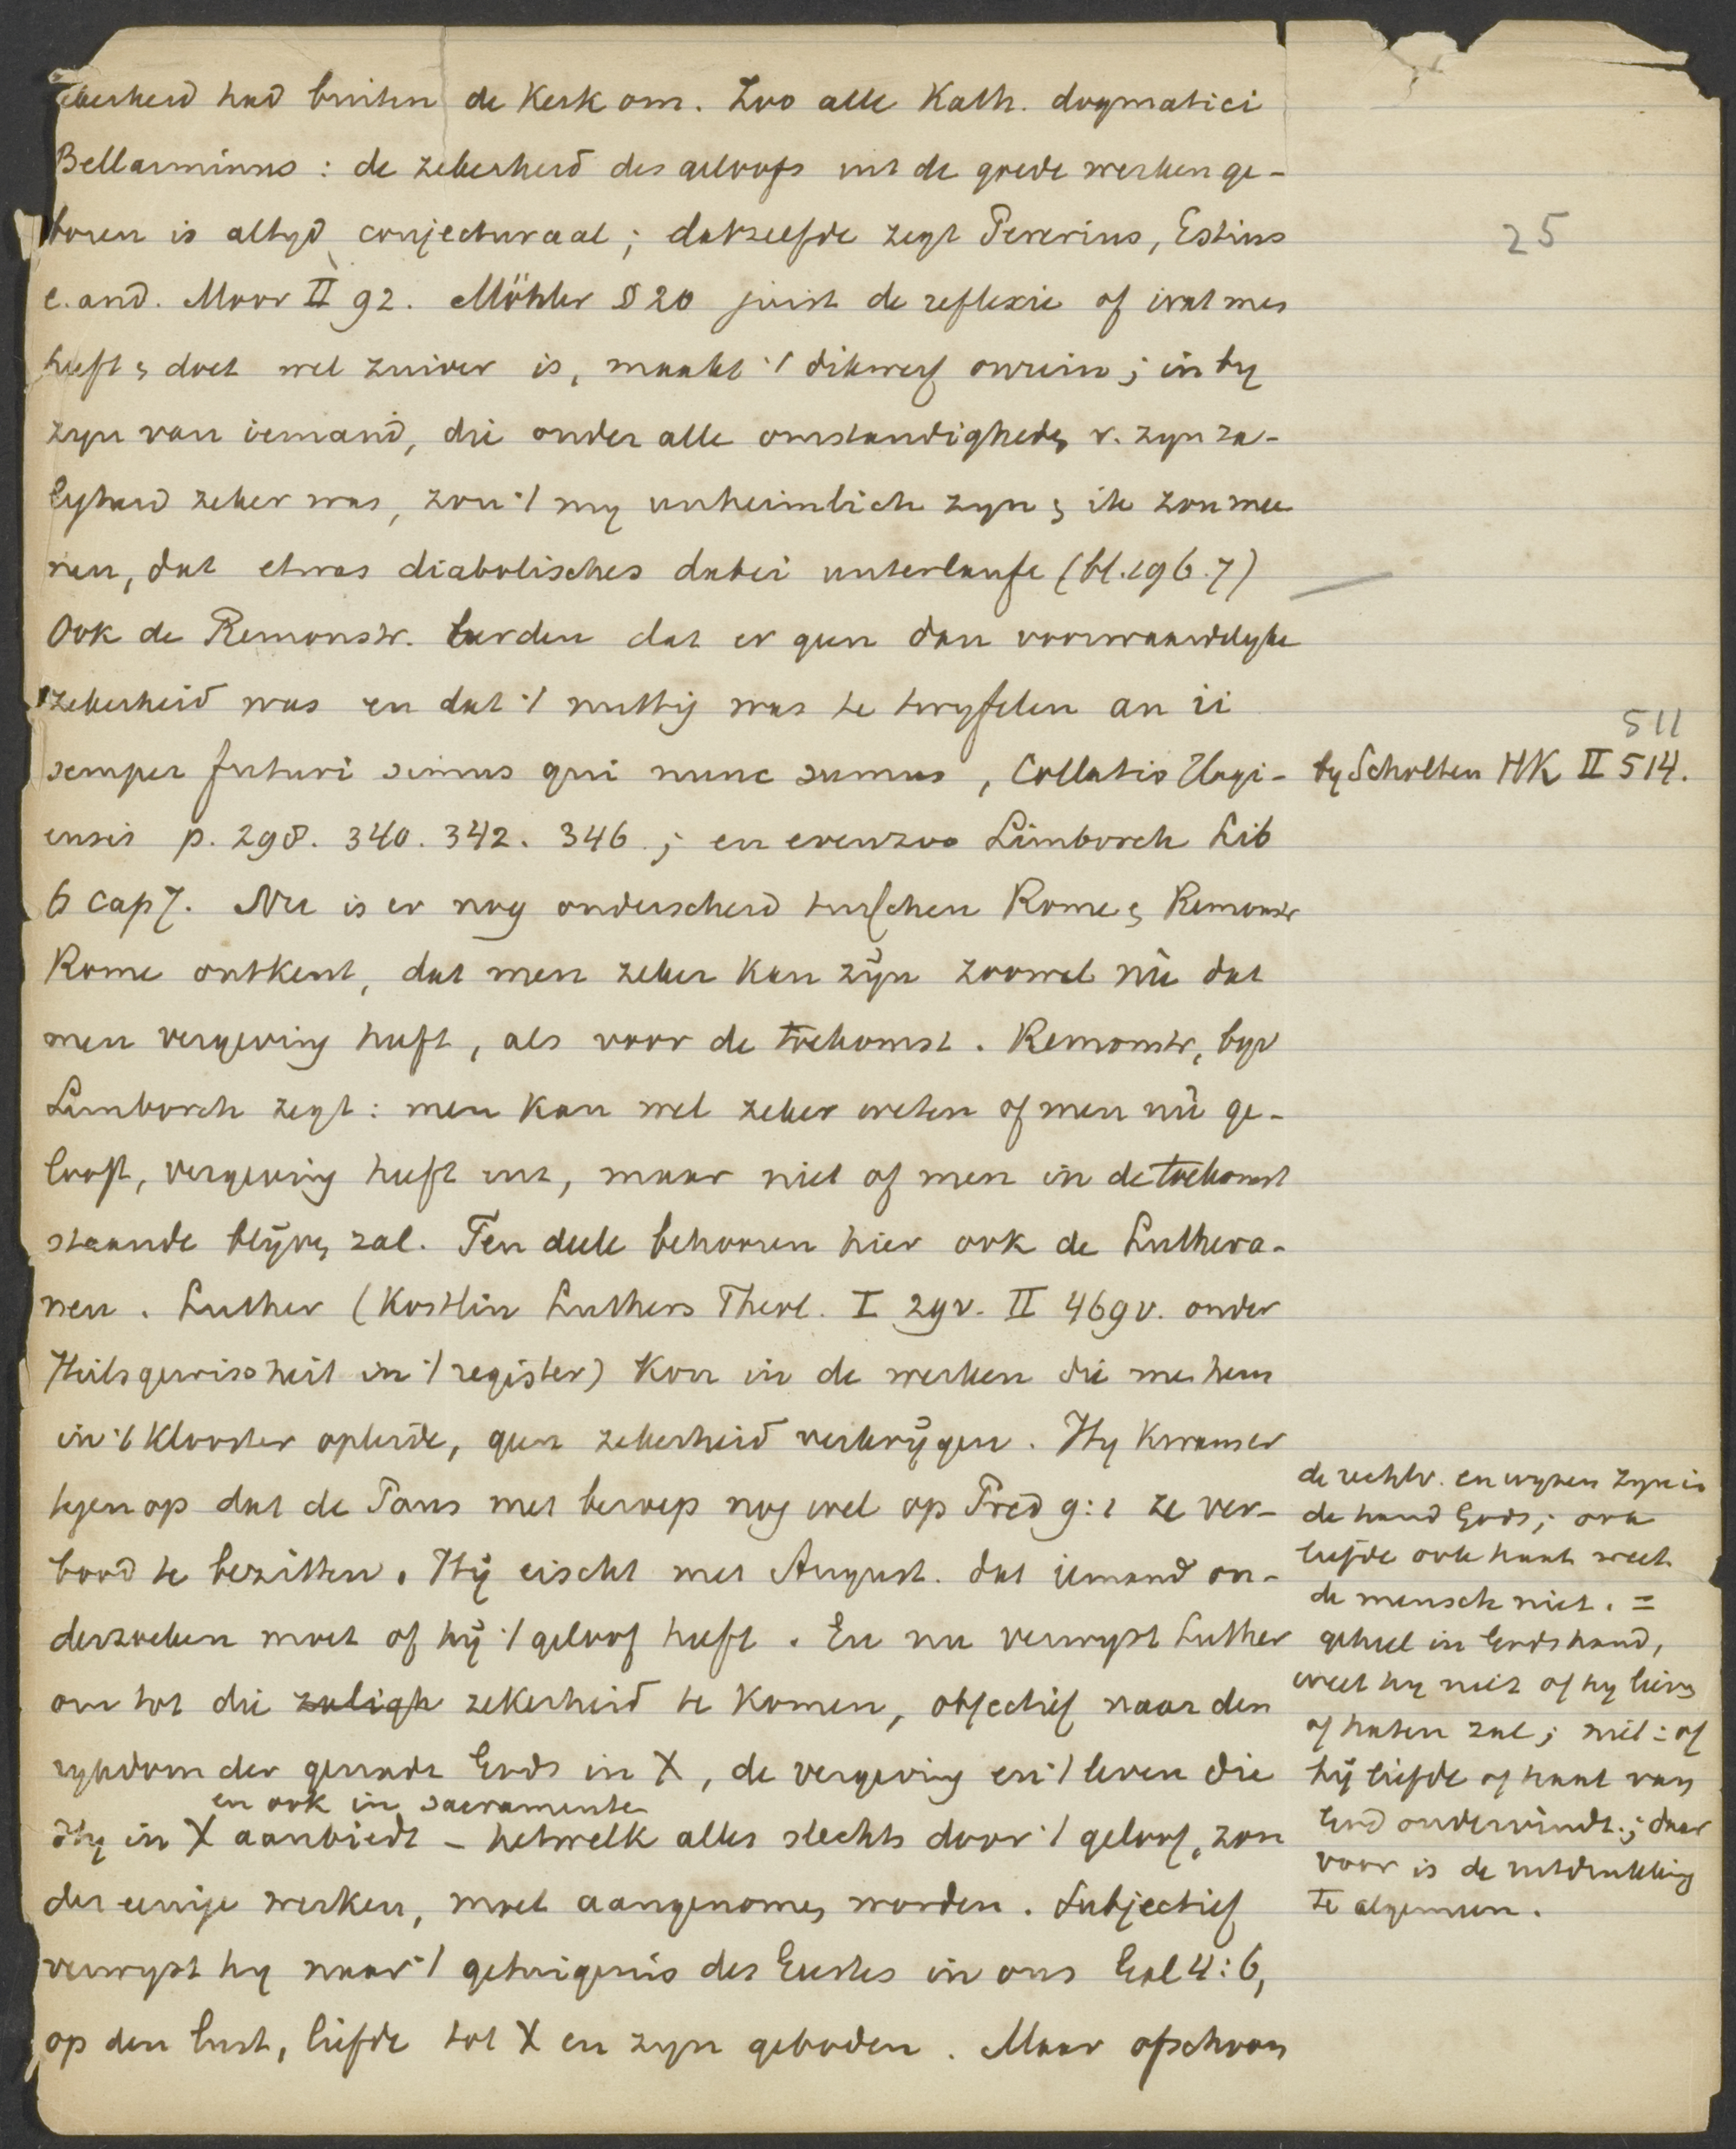 zekerheid had buiten de Kerk om. Zoo alle Kath. dogmatici
Bellarminus : de zekerheid des geloofs uit de goede werken ge-
boren is altyd conjecturaal ; datzelfde zegt Pererius, Estius
e. and. Moor II 92. Möhler § 20 juist de reflexie of wat men
heeft & doet wel zuiver is, maakt 't dikwerf onrein ; in by
zyn van iemand, die onder alle omstandigheden v. zyn za-
ligheid zeker was, zou 't my unheimlich zyn & ik zou mee
nen, dat etwas diabolisches dabei unterlaufe (bl. 196.7)
Ook de Remonstr. leerden dat er geen dan voorwaardelyke
zekerheid was en dat 't nuttig was te twyfelen an ii
semper futuri simus qui nunc sumus, Collatio Hagi-
ensis p. 298. 340. 342. 346 ; en evenzoo Limborch Lib
6 cap 7. Nu is er nog onderscheid tusschen Rome & Remonstr
Rome ontkent, dat men zeker kan zijn zoowel nù dat
men vergeving heeft, als voor de toekomst. Remonstr, byv
Limborch zegt : men kan wel zeker weten of men nù ge-
looft, vergeving heeft enz, maar niet of men in de toekomst
staande blijven zal. Ten deele behooren hier ook de Luthera-
nen. Luther (Kostlin Luthers Theol. I 29v. II 469v. onder
Heilsgewissheit in 't register) Kon in de werken die men hem
in 't Klooster opleide, geen zekerheid verkrijgen. Hy kwam er
tegen op dat de Paus met beroep nog wel op Pred 9:1 ze ver-
bood te bezitten. Hij eischt met August. dat iemand on-
derzoeken moet of hij 't geloof heeft. En nu verwyst Luther
om tot die zaligh zekerheid te komen, objectief naar den
rykdom der genade Gods in X, de vergeving en 't leven die
en ook in sacramenten
Hy in X aanbiedt - hetwelk alles slechts door 't geloof, zon
der eenige werken, moet aangenomen worden. Subjectief
verwyst hy naar 't getuigenis des Geestes in ons Gal 4:6,
op den lust, liefde tot X en zyn geboden. Maar ofschoon
25
511
by Scholten HK II 514.
de rechtv. en wyzen zyn in
de hand Gods ; ook
liefde ook haat weet
de mensch niet. =
geheel in Gods hand,
weet hy niet of hy lieven
of haten zal ; niet = of
hij liefde of haat van
God ondervindt ; daar
voor is de uitdrukking
te algemeen.